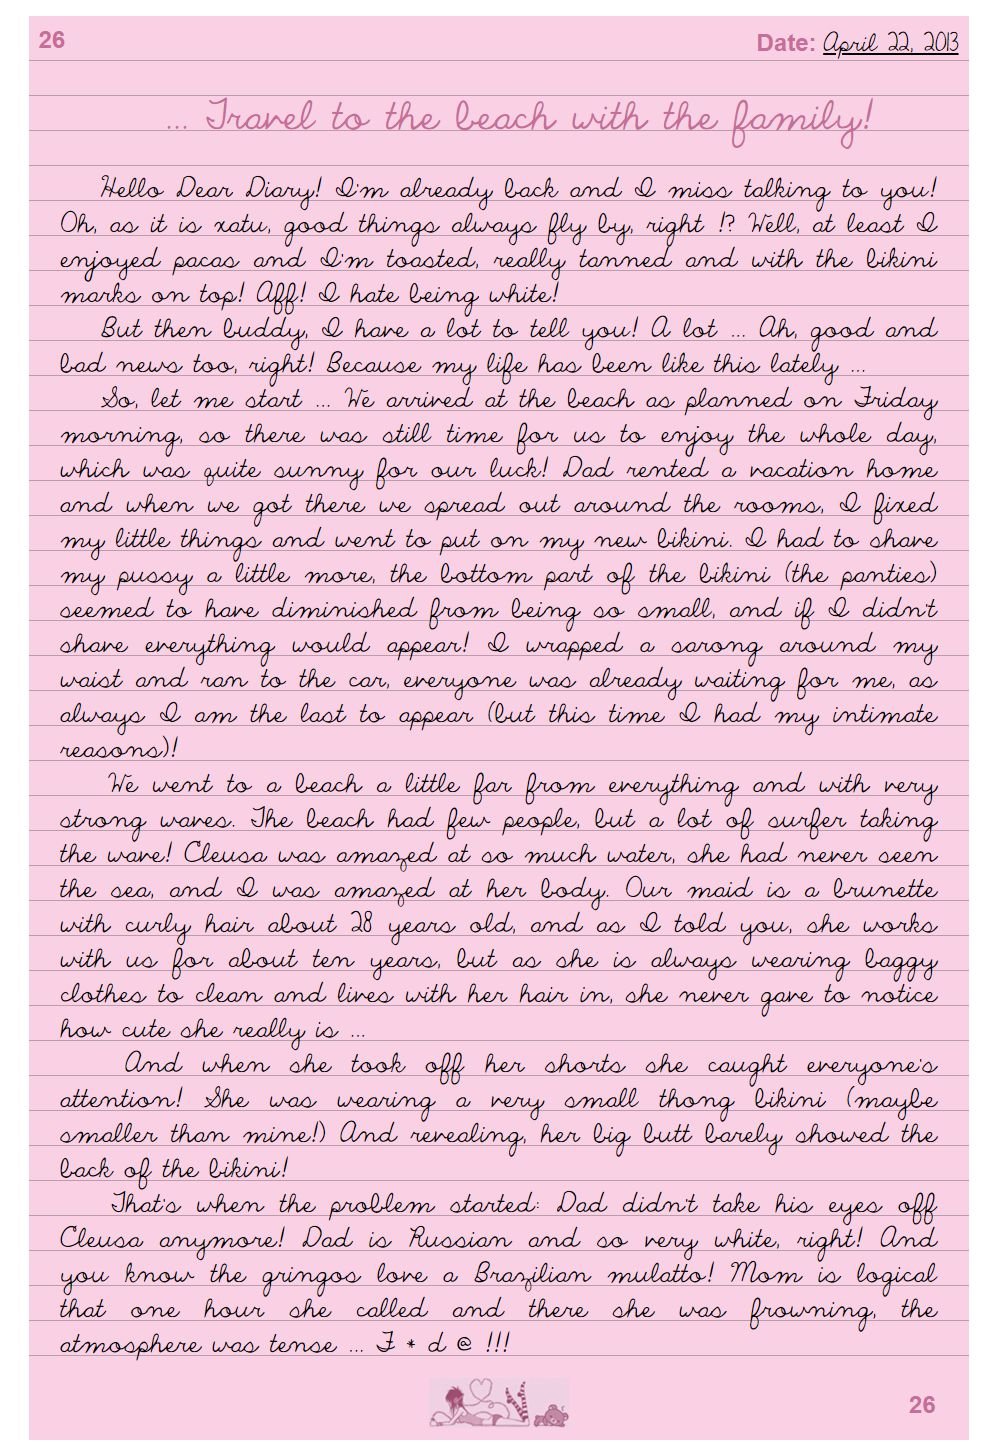 26
Date: April 22, 2013
... Travel to the beach with the family!
Hello Dear Diary! I'm already back and I miss talking to you!
Oh, as it is xatu, good things always fly by, right !? Well, at least I
enjoyed pacas and I'm toasted, really tanned and with the bikini
marks on top! Aff! I hate being white!
But then buddy, I have a lot to tell you! A lot ... Ah, good and
bad news too, right! Because my life has been like this lately ...
So, let me start ... We arrived at the beach as planned on Friday
morning, so there was still time for us to enjoy the whole day,
which was quite sunny for our luck! Dad rented a vacation home
and when we got there we spread out around the rooms, I fixed
my little things and went to put on my new bikini. I had to shave
my pussy a little more, the bottom part of the bikini (the panties)
seemed to have diminished from being so small, and if I didn't
shave everything would appear! I wrapped a sarong around my
waist and ran to the car, everyone was already waiting for me, as
always I am the last to appear (but this time I had my intimate
reasons)!
We went to a beach a little far from everything and with very
strong waves. The beach had few people, but a lot of surfer taking
the wave! Cleusa was amazed at so much water, she had never seen
the sea, and I was amazed at her body. Our maid is a brunette
with curly hair about 28 years old, and as I told you, she works
with us for about ten years, but as she is always wearing baggy
clothes to clean and lives with her hair in, she never gave to notice
how cute she really is ...
And when she took off her shorts she caught everyone's
attention! She was wearing a very small thong bikini (maybe
smaller than mine!) And revealing, her big butt barely showed the
back of the bikini!
That's when the problem started: Dad didn't take his eyes off
Cleusa anymore! Dad is Russian and so very white, right! And
you know the gringos love a Brazilian mulatto! Mom is logical
that one hour she called and there she was frowning, the
atmosphere was tense ... F * d @ !!!
26